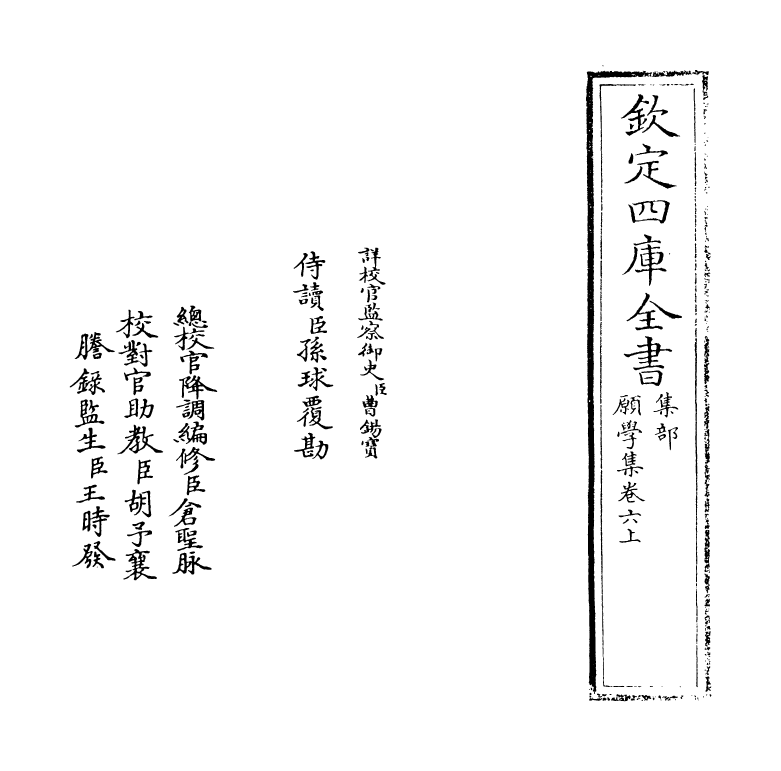 欽定四庫全書
集部
願學集卷六上
詳校官監察御史臣曹錫寶
侍讀臣孫球覆勘
總校官降調編修臣倉聖脉
校對官助教臣胡予襄
謄錄監生臣王時發